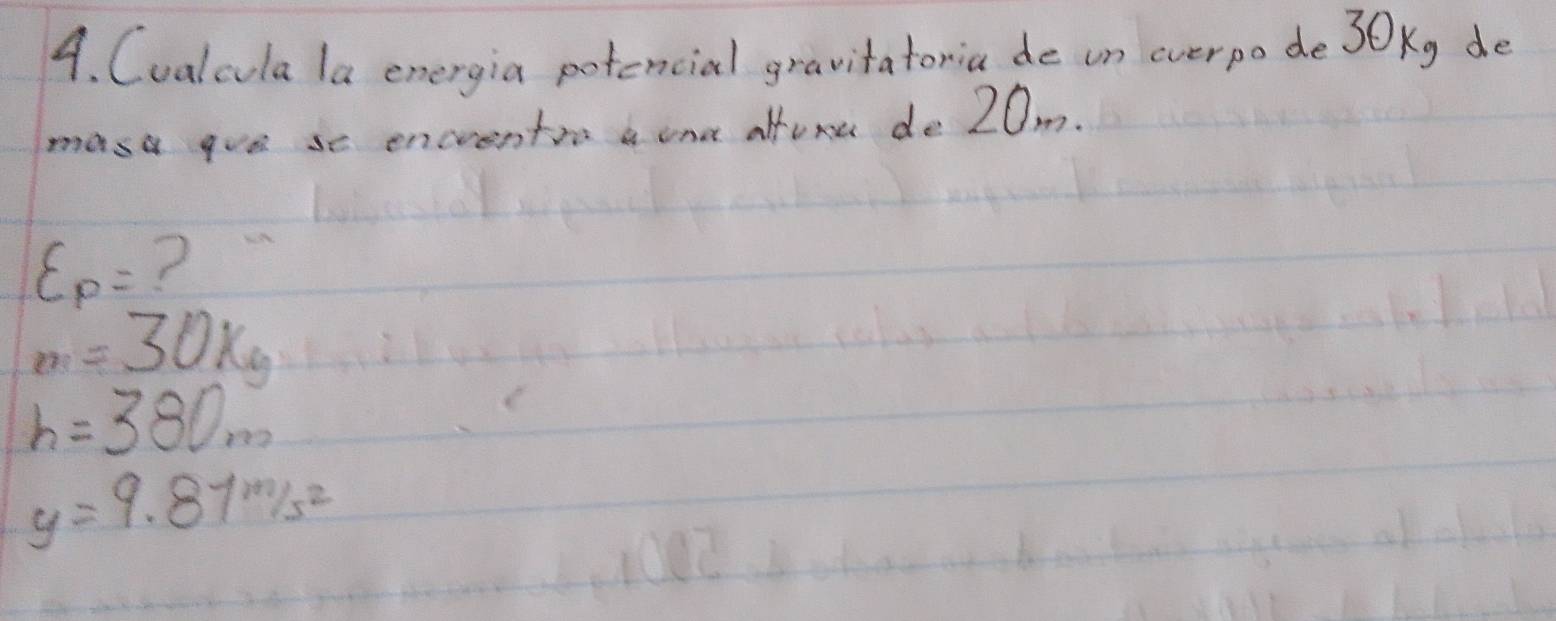 4. Cualcula la energia potencial gravitatoria de un cuerpo de 30Kg de
masa que se encuentra a una altura de 20m.
Ep=?
m=30Kg
h=380m
g=9.81m/s²